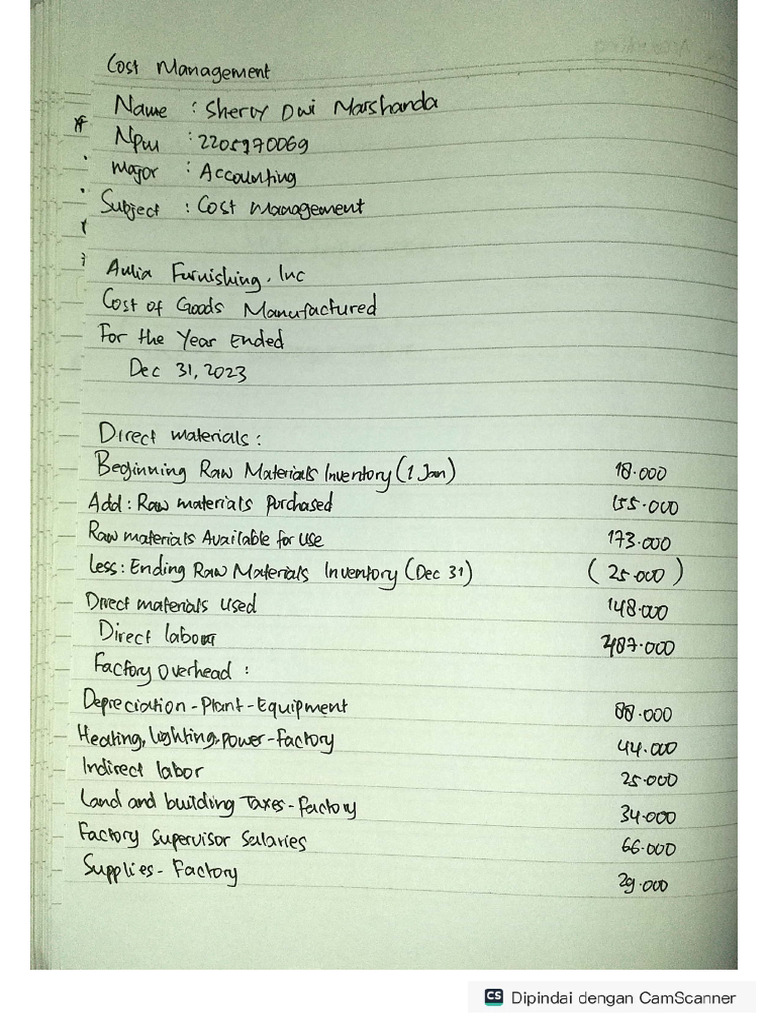 Cost Management
Name : Sherly Dwi Marshanda
Npm : 2205970069
Major : Accounting
Subject : Cost Management
Aulia Furnishing, Inc
Cost of Goods Manufactured
For the Year Ended
Dec 31, 2023
Direct materials :
Beginning Raw Materials Inventory (1 Jan) 18.000
Add : Raw materials Purchased 155.000
Raw materials Available for Use 173.000
Less : Ending Raw Materials Inventory (Dec 31) ( 25.000 )
Direct materials used 148.000
Direct labour 487.000
Factory Overhead :
Depreciation - Plant - Equipment 88.000
Heating, lighting, power - Factory 44.000
Indirect labor 25.000
Land and building Taxes - Factory 34.000
Factory Supervisor Salaries 66.000
Supplies - Factory 29.000
CS Dipindai dengan CamScanner